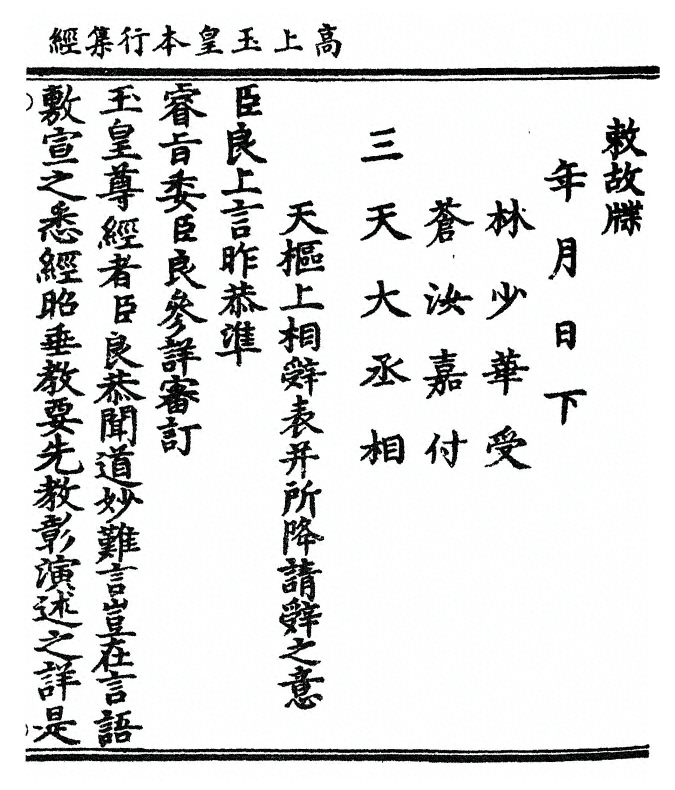 高上玉皇本行集經
敕故牒
年月日下
林少華受
蒼汝嘉付
三天大丞相
天樞上相辭表并所降請辭之意
臣良上言昨恭準
睿旨委臣良參詳審訂
玉皇尊經者臣良恭聞道妙難言豈在言語
敷宣之悉經昭垂教要先教彰演述之詳是